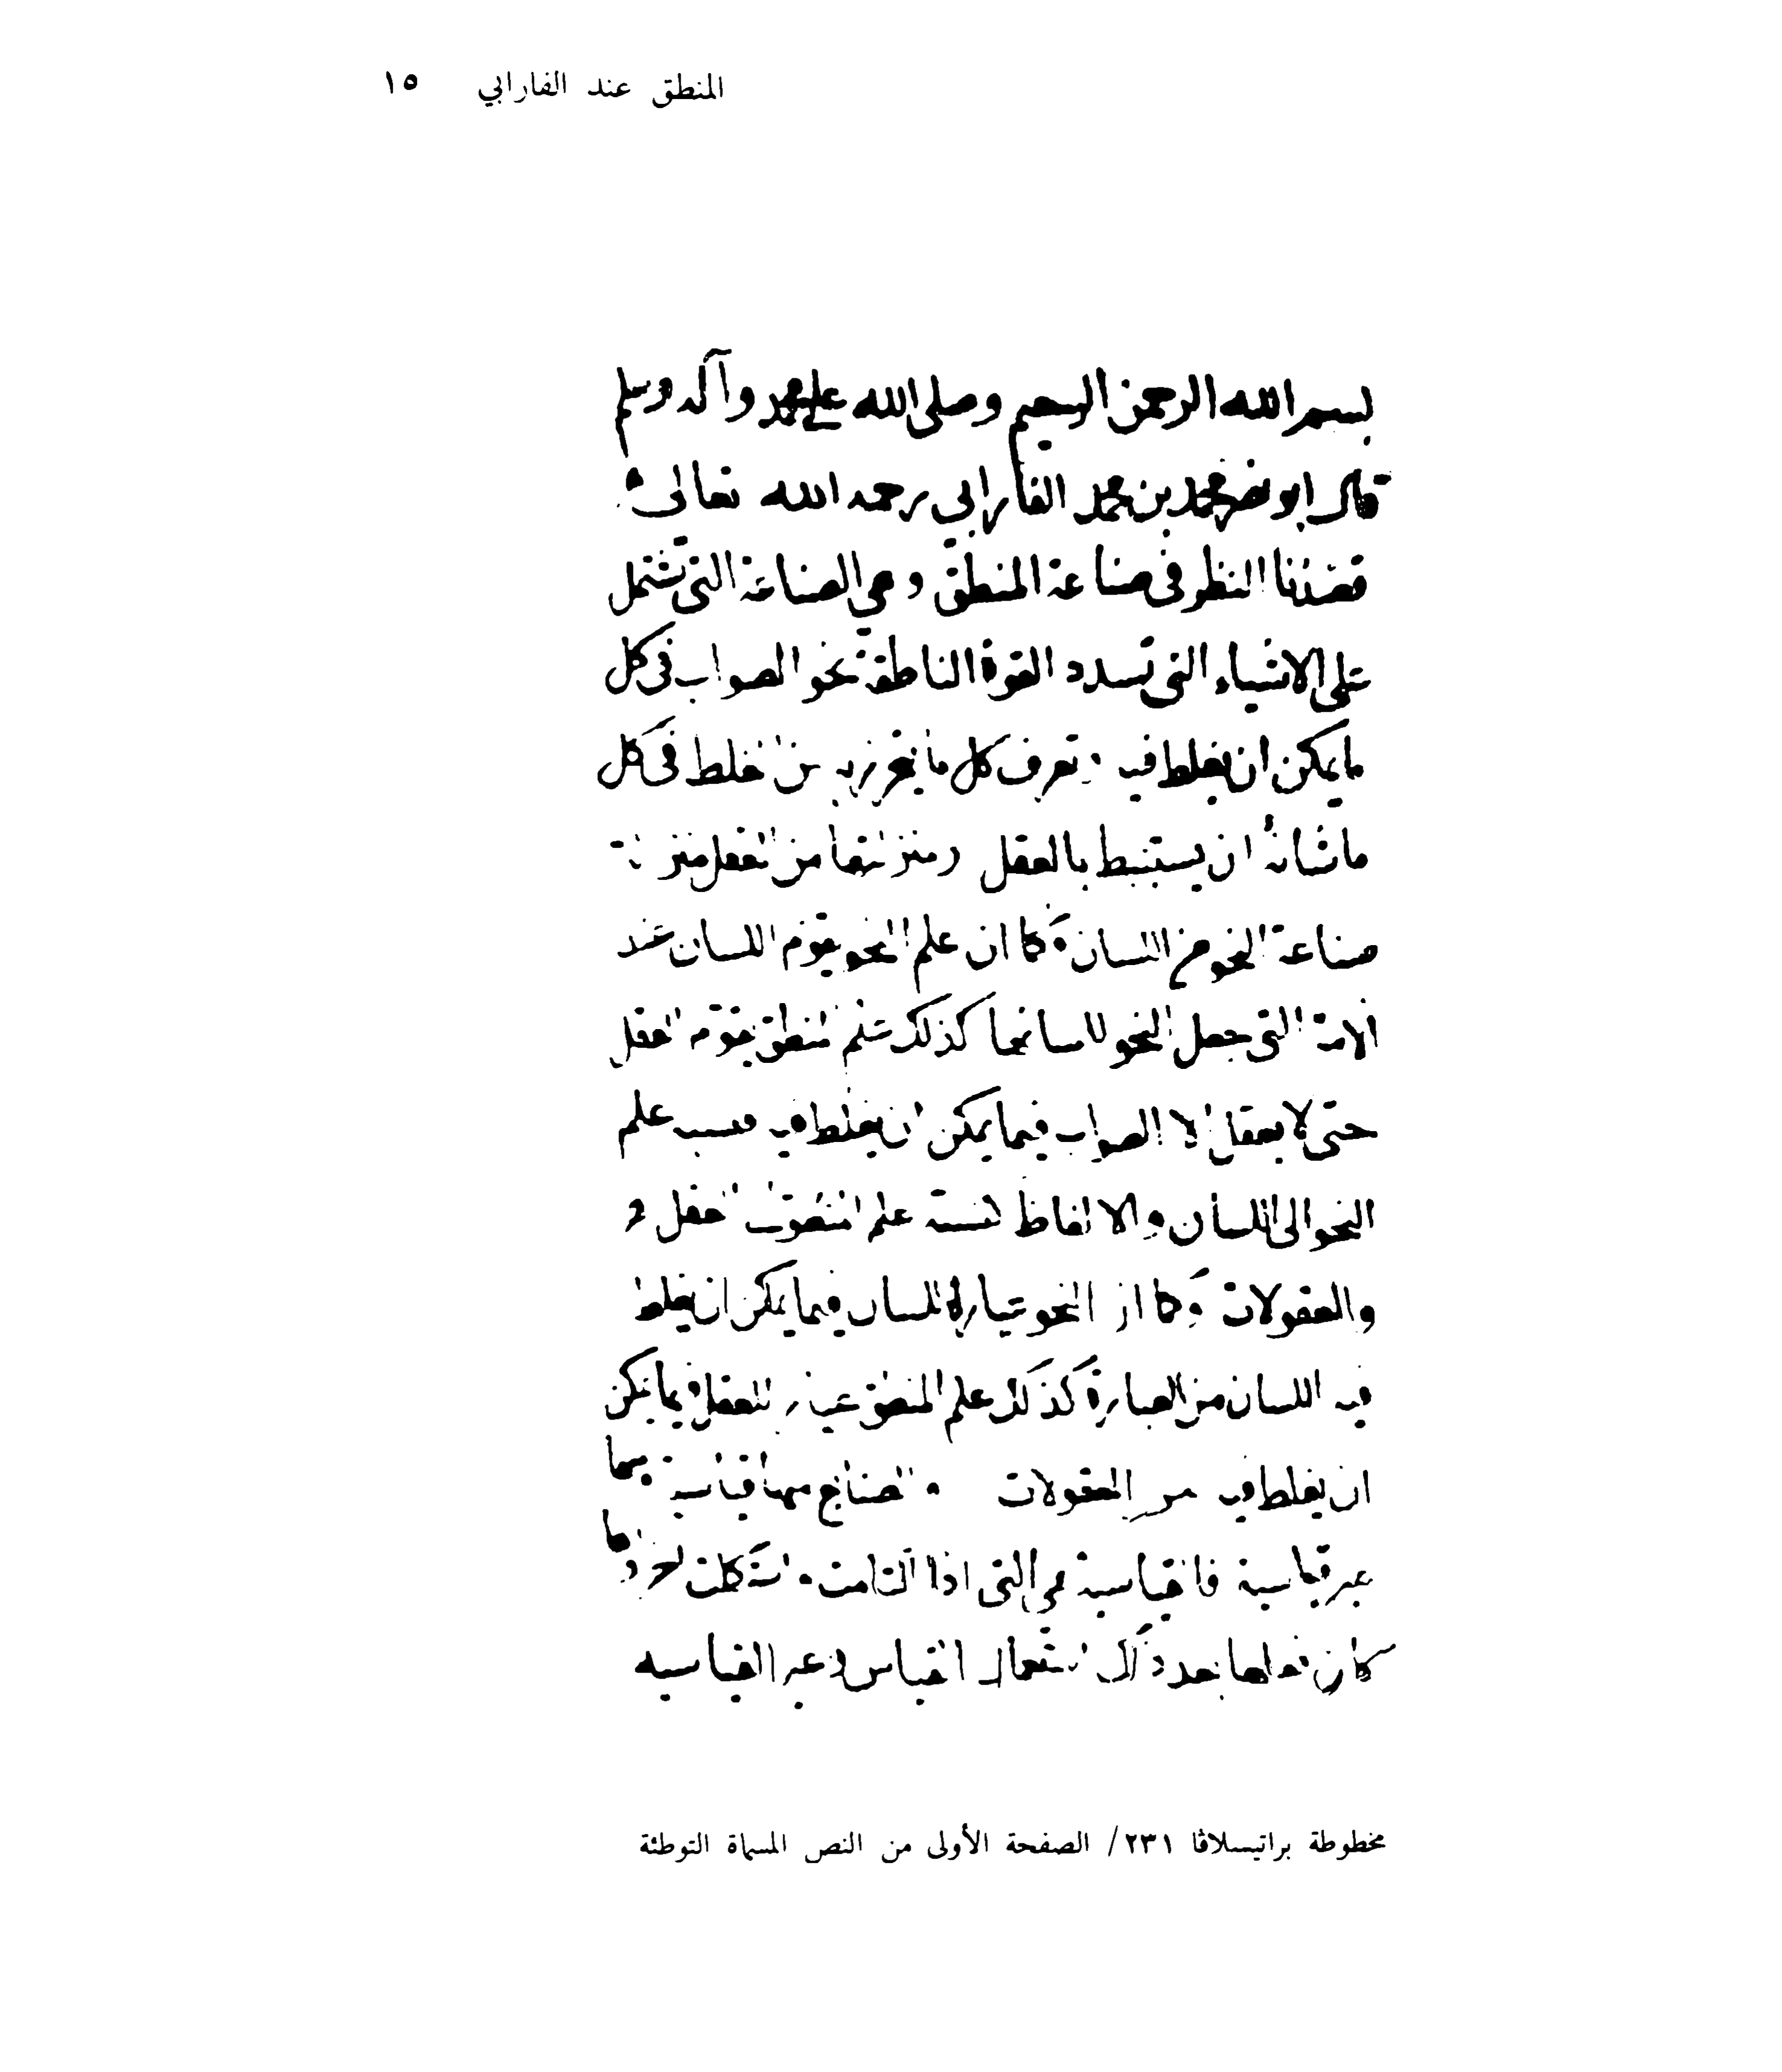 المنطق عند الفارابي ١٥
بسم الله الرحمن الرحيم وصلى الله على محمد وآله وسلم
قال ابو نصر محمد بن محمد الفارابي رحمه الله تعالى
قصدنا النظر فى صناعة المنطق وهي الصناعة التى تشتمل
على الاشياء التى تسدد القوة الناطقة نحو الصواب فى كل
ما يمكن ان يغلط فيه وتعرف كل ما يتحرز به من الغلط فى كل
ما شانه ان يستنبط بالعقل ومنزلتها من العقل منزلة
صناعة النحو من اللسان وكما ان علم النحو يقوم اللسان عند
الامة التى جعل النحو للسانها كذلك علم المنطق يقوم العقل
حتى لا يعقل الا الصواب فيما يمكن ان يغلط فيه فنسبة علم
النحو الى اللسان والالفاظ كنسبة علم المنطق العقل و
والمعقولات وكما ان النحو عيارة اللسان فيما يمكن ان يغلط
فيه اللسان من العبارة كذلك علم المنطق عيار العقل فيما يمكن
ان يغلط فيه من المعقولات والصنائع منها قياسية ومنها
غير قياسية فالقياسية هي التى اذا التامت واستكملت
كان فعلها بعد ذلك استعمال القياس وغير القياسية
مخطوطة براتيسلاڤا ٢٣١/ الصفحة الأولى من النص المسماة التوطئة